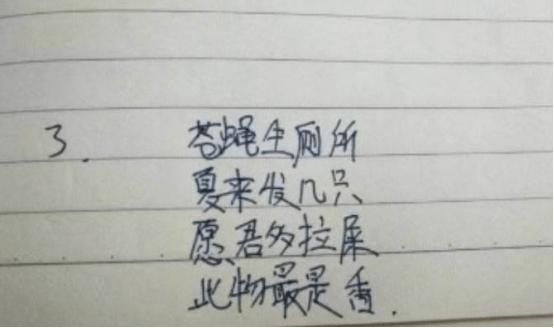 3. 苍蝇生厕所
夏来发几只
愿君多拉屎
此物最是香.